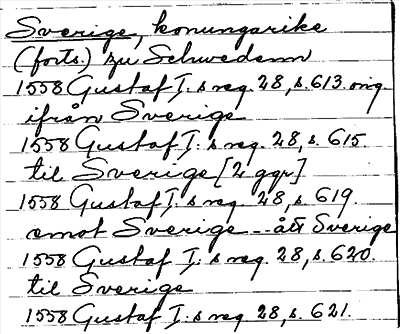 Sverige, konungarike
(forts.) zu Schwedenn
1558 Gustaf I: s reg. 28, s. 613. orig.
ifrån Sverige
1558 Gustaf I: s reg. 28, s. 615.
till Sverige [2 ggr]
1558 Gustaf I: s reg. 28, s. 619.
emot Sverige -- ått Sverige
1558 Gustaf I: s reg. 28, s. 620.
till Sverige
1558 Gustaf I: s reg. 28, s. 621.